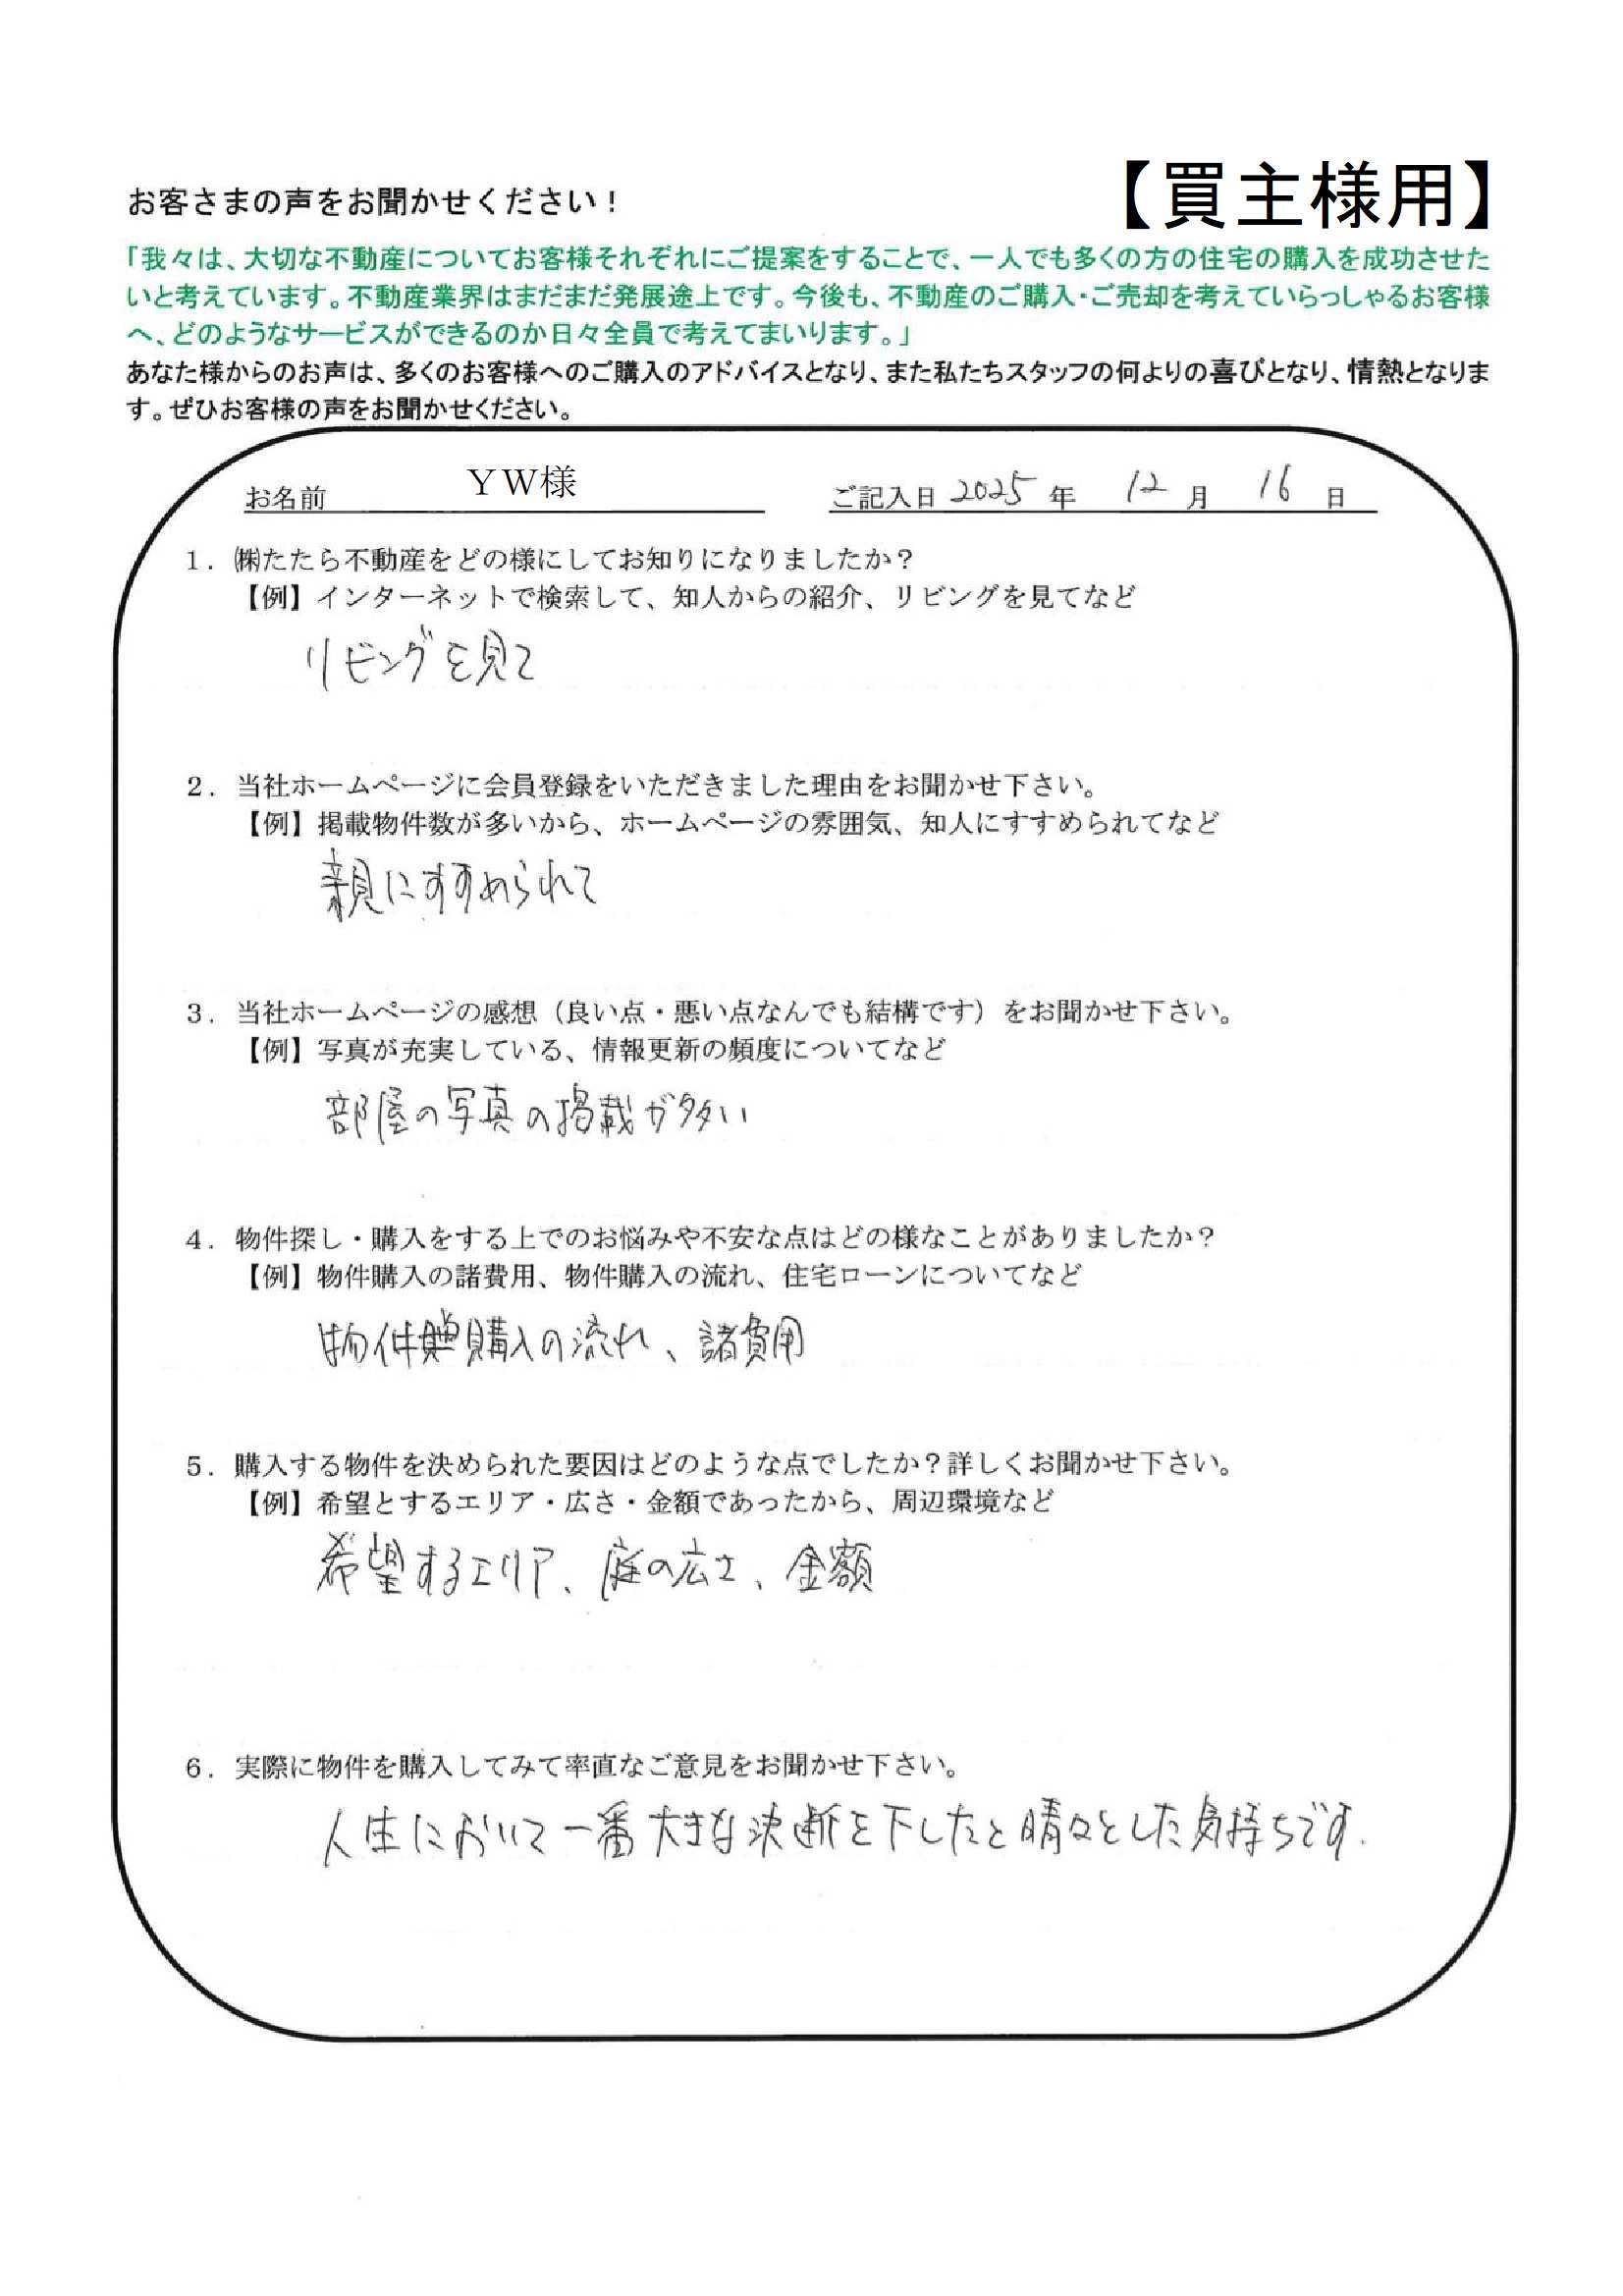 お客さまの声をお聞かせください！
【買主様用】
「我々は、大切な不動産についてお客様それぞれにご提案をすることで、一人でも多くの方の住宅の購入を成功させた
いと考えています。不動産業界はまだまだ発展途上です。今後も、不動産のご購入・ご売却を考えていらっしゃるお客様
へ、どのようなサービスができるのか日々全員で考えてまいります。」
あなた様からのお声は、多くのお客様へのご購入のアドバイスとなり、また私たちスタッフの何よりの喜びとなり、情熱となりま
す。ぜひお客様の声をお聞かせください。
お名前 ＹＷ様 ご記入日 2025 年 12 月 16 日
１．㈱たたら不動産をどの様にしてお知りになりましたか？
【例】インターネットで検索して、知人からの紹介、リビングを見てなど
リビングを見て
２．当社ホームページに会員登録をいただきました理由をお聞かせ下さい。
【例】掲載物件数が多いから、ホームページの雰囲気、知人にすすめられてなど
親にすすめられて
３．当社ホームページの感想（良い点・悪い点なんでも結構です）をお聞かせ下さい。
【例】写真が充実している、情報更新の頻度についてなど
部屋の写真の掲載が多い
４．物件探し・購入をする上でのお悩みや不安な点はどの様なことがありましたか？
【例】物件購入の諸費用、物件購入の流れ、住宅ローンについてなど
物件購入の流れ、諸費用
５．購入する物件を決められた要因はどのような点でしたか？詳しくお聞かせ下さい。
【例】希望とするエリア・広さ・金額であったから、周辺環境など
希望するエリア、庭の広さ、金額
６．実際に物件を購入してみて率直なご意見をお聞かせ下さい。
人生において一番大きな決断を下したと晴々とした気持ちです.